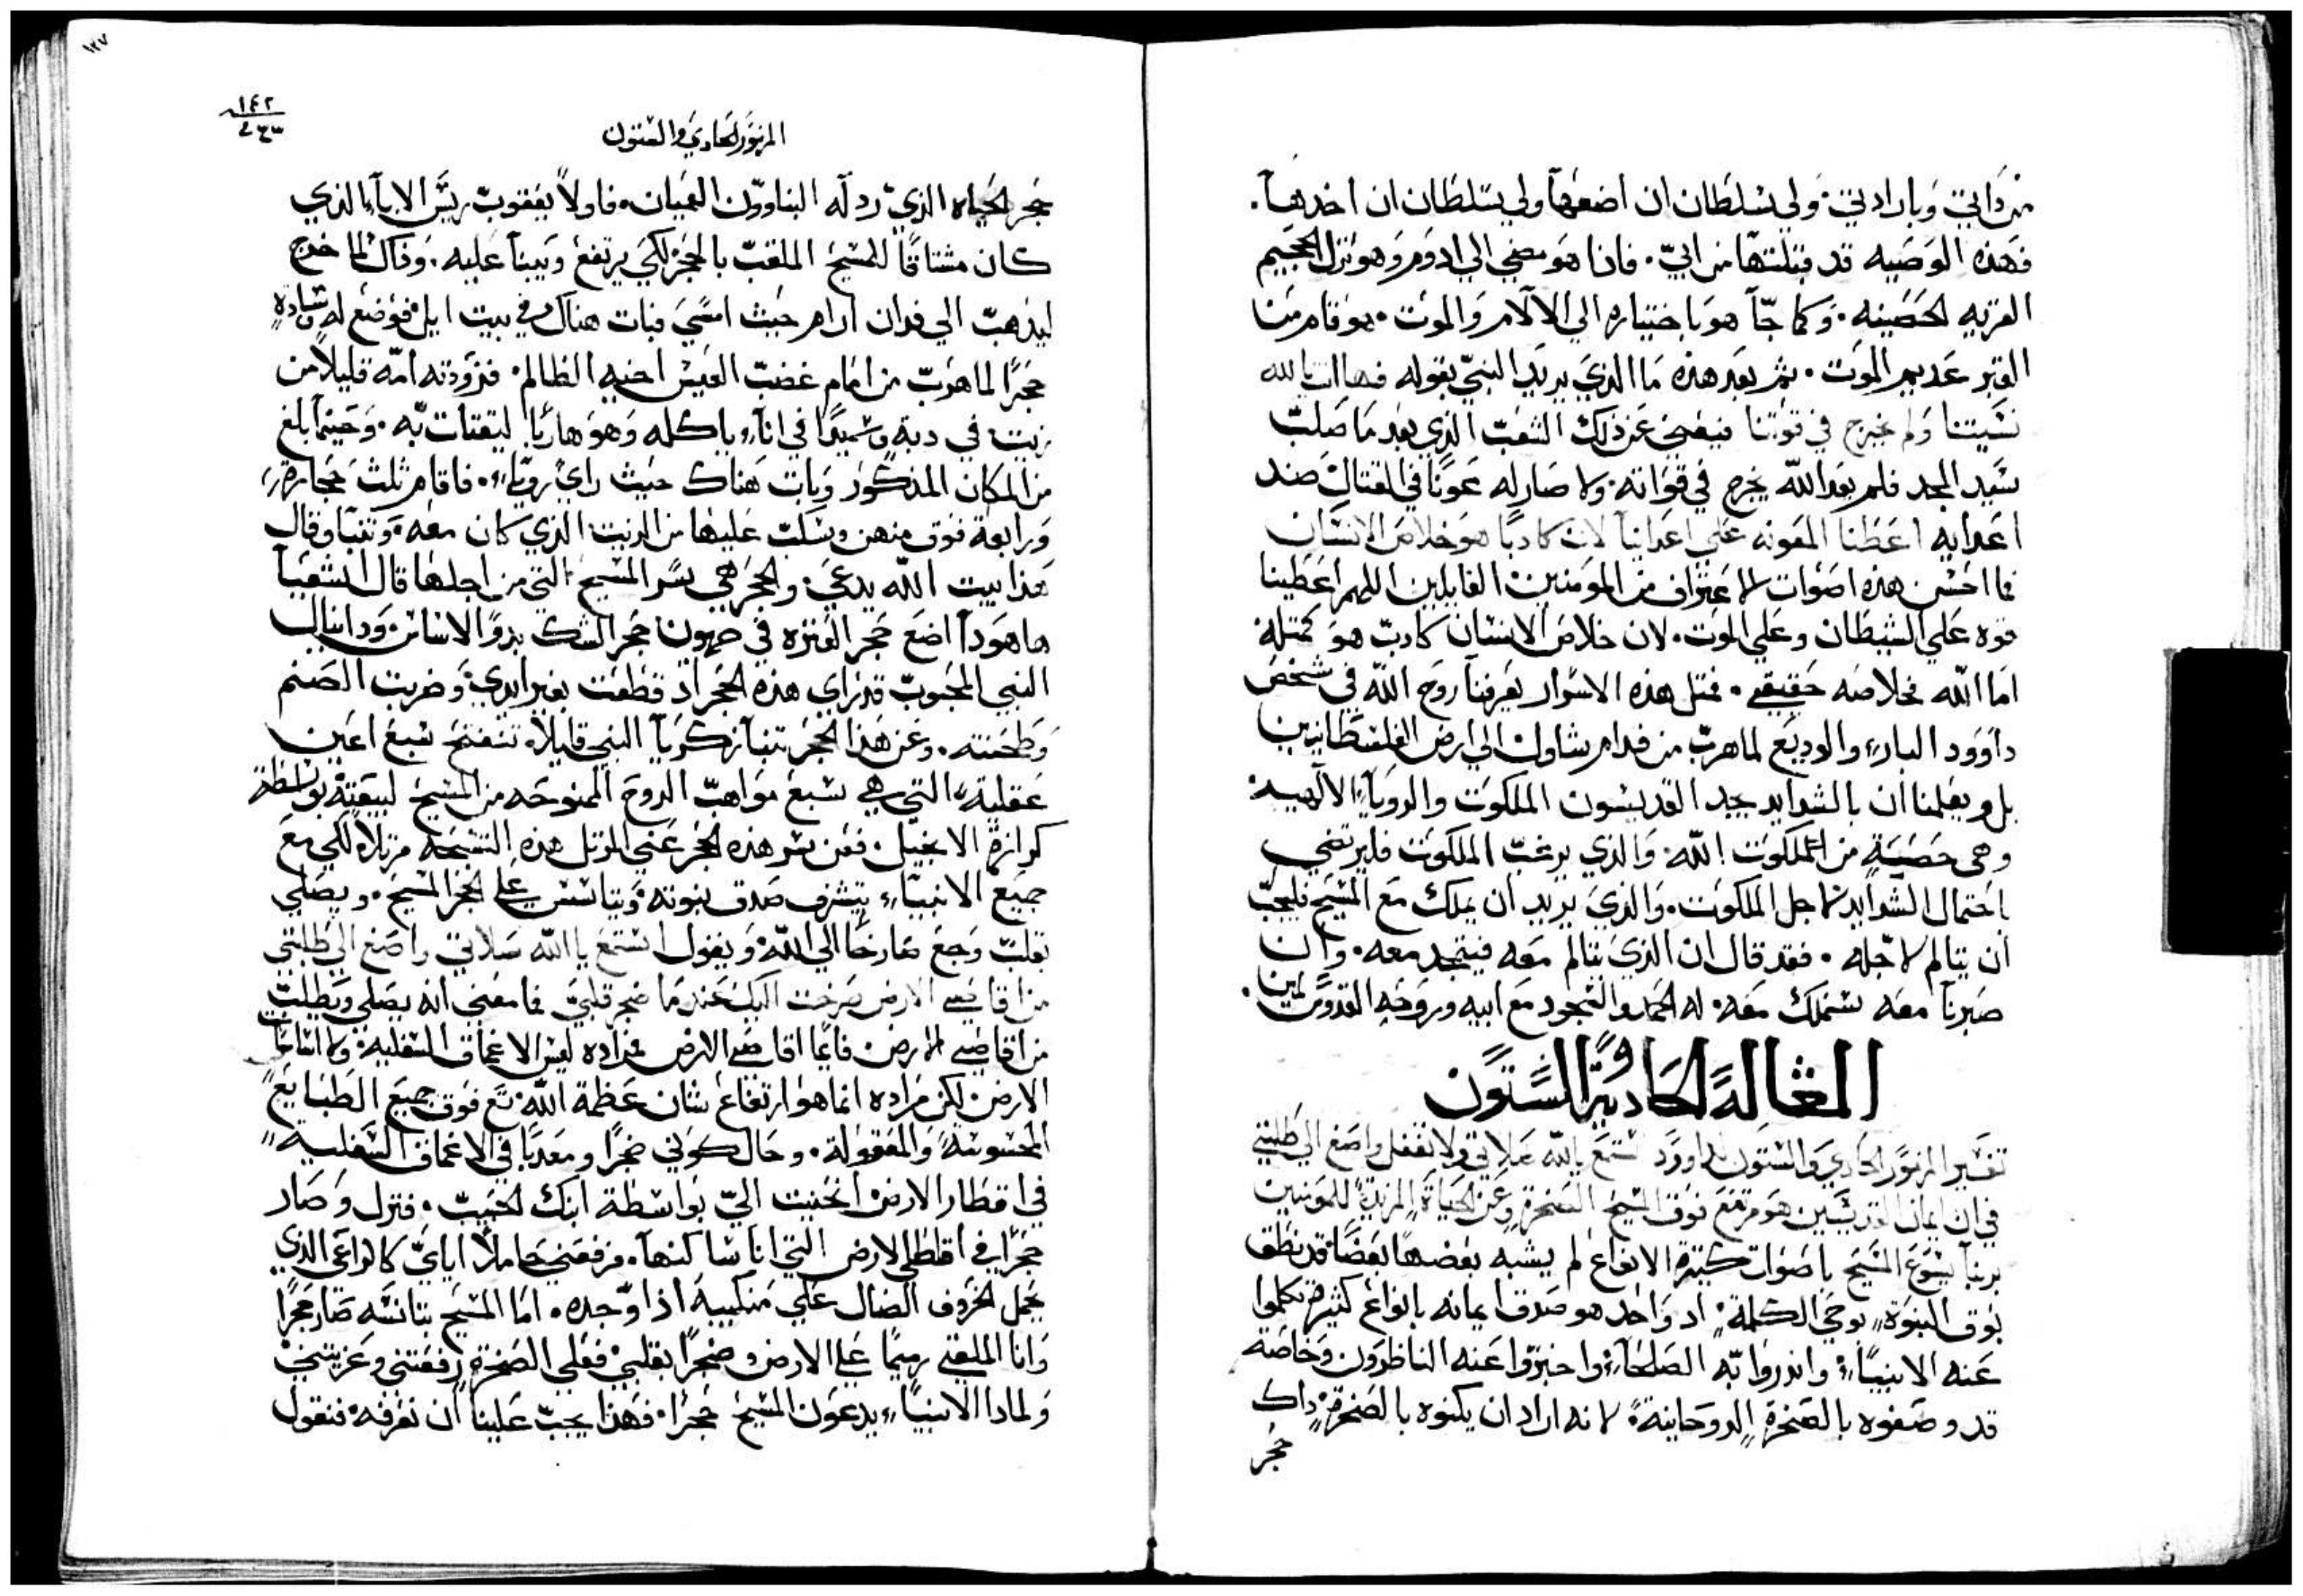 من ذاتي وبارادتي. ولي سلطان ان اضعها ولي سلطان ان اخدها.
فهذه الوصيه قد قبلتها من ابي. فادا هو مضي الي ادوم وهو نزل الجحيم
القريه الحصينه. وكما جآ هو باختياره الي الالام والموت. هو قام من
القبر عديم الموت. ثم بعد هذه ما الذي يريد النبي بقوله فها انت يا الله
نسيتنا ولم تخرج في قواتنا فيعني عن ذلك الشعب الذي بعد ما صلب
سيد المجد فلم يعد الله يخرج في قواته. ولا صار له عونا في القتال ضد
اعدايه اعطنا المعونه علي اعداينا لان كادبا هو خلاص الانسان
فما احسن هذه اصوات الاعتراف من المومنين القايلين اللهم اعطينا
قوه علي الشيطان وعلي الموت. لان خلاص الانسان كادب هو كمتله
اما الله فخلاصه حقيقي. فمتل هذه الاسرار يعرفنا روح الله في شخص
داوود البار والوديع لما هرب من قدام شاول الي ارض الفلسطانيين
بل ويعلمنا ان بالشدايد يجد القديسون الملكوت والروياء الالهيه
وهي حصينة من الملكوت الله. والذي يرغب الملكوت فليرتضي
باحتمال الشدايد لاجل الملكوت. والذي يريد ان يملك مع المسيح فليجب
ان يتالم لاجله. فقد قال ان الذي يتالم معه فيتمجد معه. وان
صبرنا معه سنملك معه. له الحمد والتمجود مع ابيه وروحه القدوس امين.
المقالة الحادية والستون
تفسير المزمور الحادي والستون لداوود استمع يا الله صلاتي ولا تغفل واصغ الي طلبتي
في ان ايمان القديسين هو مرتفع فوق المسيح الصخرة وعن الحياة المزيدة للمومنين
بربنا يسوع المسيح باصوات كتيرة الانواع لم يشبه بعضها بعضا قد نطق
بوق النبوة بوحي الكلمة. اد واحد هو صدق ايمانه بانواع كثيرة تكلموا
عنه الانبياء واندروا به الصلحاء واخبروا عنه الناظرون وخاصة
قد وصفوه بالصخرة الروحانية لانه اراد ان يكنوه بالصخرة داك
حجر
١٢٧
١٤٢
المزمور الحادي والستون
حجر الحياه الذي ردله البناوون العميان. فاولا يعقوب ريس الاباء الذي
كان مشتاقا للمسيح الملقب بالحجر لكي يرتفع ويبنا عليه. وذاك لما خرج
ليدهب الي فدان ارام حيث امسي فبات هناك في بيت ايل فوضع له وسادة
حجرا لما هرب من امام غضب العيس اخيه الظالم. فزودته امه قليلا من
زيت في دبة وسميدا في اناء ياكله وهو هاربا ليقتات به. وحينما بلغ
من المكان المذكور وبات هناك حيث راي روياء. فاقام ثلث حجارة
ورابعة فوق منهن وسكب عليها من الزيت الذي كان معه. وتنبا وقال
هذا بيت الله يدعي. والحجر هي سر المسيح التي من اجلها قال اشعيا
ها هودا اضع حجر العتره في صهيون حجر الشك بدو الاساس. ودانيال
النبي المحبوب قد راي هذه الحجر اد قطعت بغير ايدي. وضربت الصنم
وطحنته. وعن هذا الحجر تنبا زكريا النبي قايلا. تنفتح سبع اعين
عقلية التي هي سبع مواهب الروح الممنوحه من المسيح لبيعته بواسطة
كرازة الانجيل. فعن سر هذه الحجر عني المرتل هذه التسبحة مرتلا لكي مع
جميع الانبياء يتشرف صدق نبوته ويتاسس علي الحجر المسيح. ويصلي
بقلب وجع صارخا الي الله. ويقول استمع يا الله صلاتي واصغ الي طلبتي
من اقاصي الارض صرخت اليك عندما ضجر قلبي فما معني انه يصلي ويطلب
من اقاصي الارض. فايما اقاصي الارض مراده ليس الاعماق السفليه. ولا اساسات
الارض لكن مراده انما هو ارتفاع شان عظمة الله تع فوق جميع الطبايع
المحسوسة والمعقولة. وحال كوني ضجرا ومعدبا في الاعماق السفلية
في اقطار الارض انحنيت الي بواسطة ابنك الحبيب. فنزل وصار
حجرا في اقطار الارض التي انا ساكنها. فرفعني حاملا اياي كالراعي الذي
يحمل الخروف الضال علي منكبيه اذا وجده. اما المسيح بتانسه صار حجرا
وانا الملقي رميما علي الارض وضجرا بقلبي فعلي الصخرة رفعتني وعزيتني
ولمادا الانبياء يدعون المسيح حجرا. فهذا يجب علينا ان نعرفه. فنقول